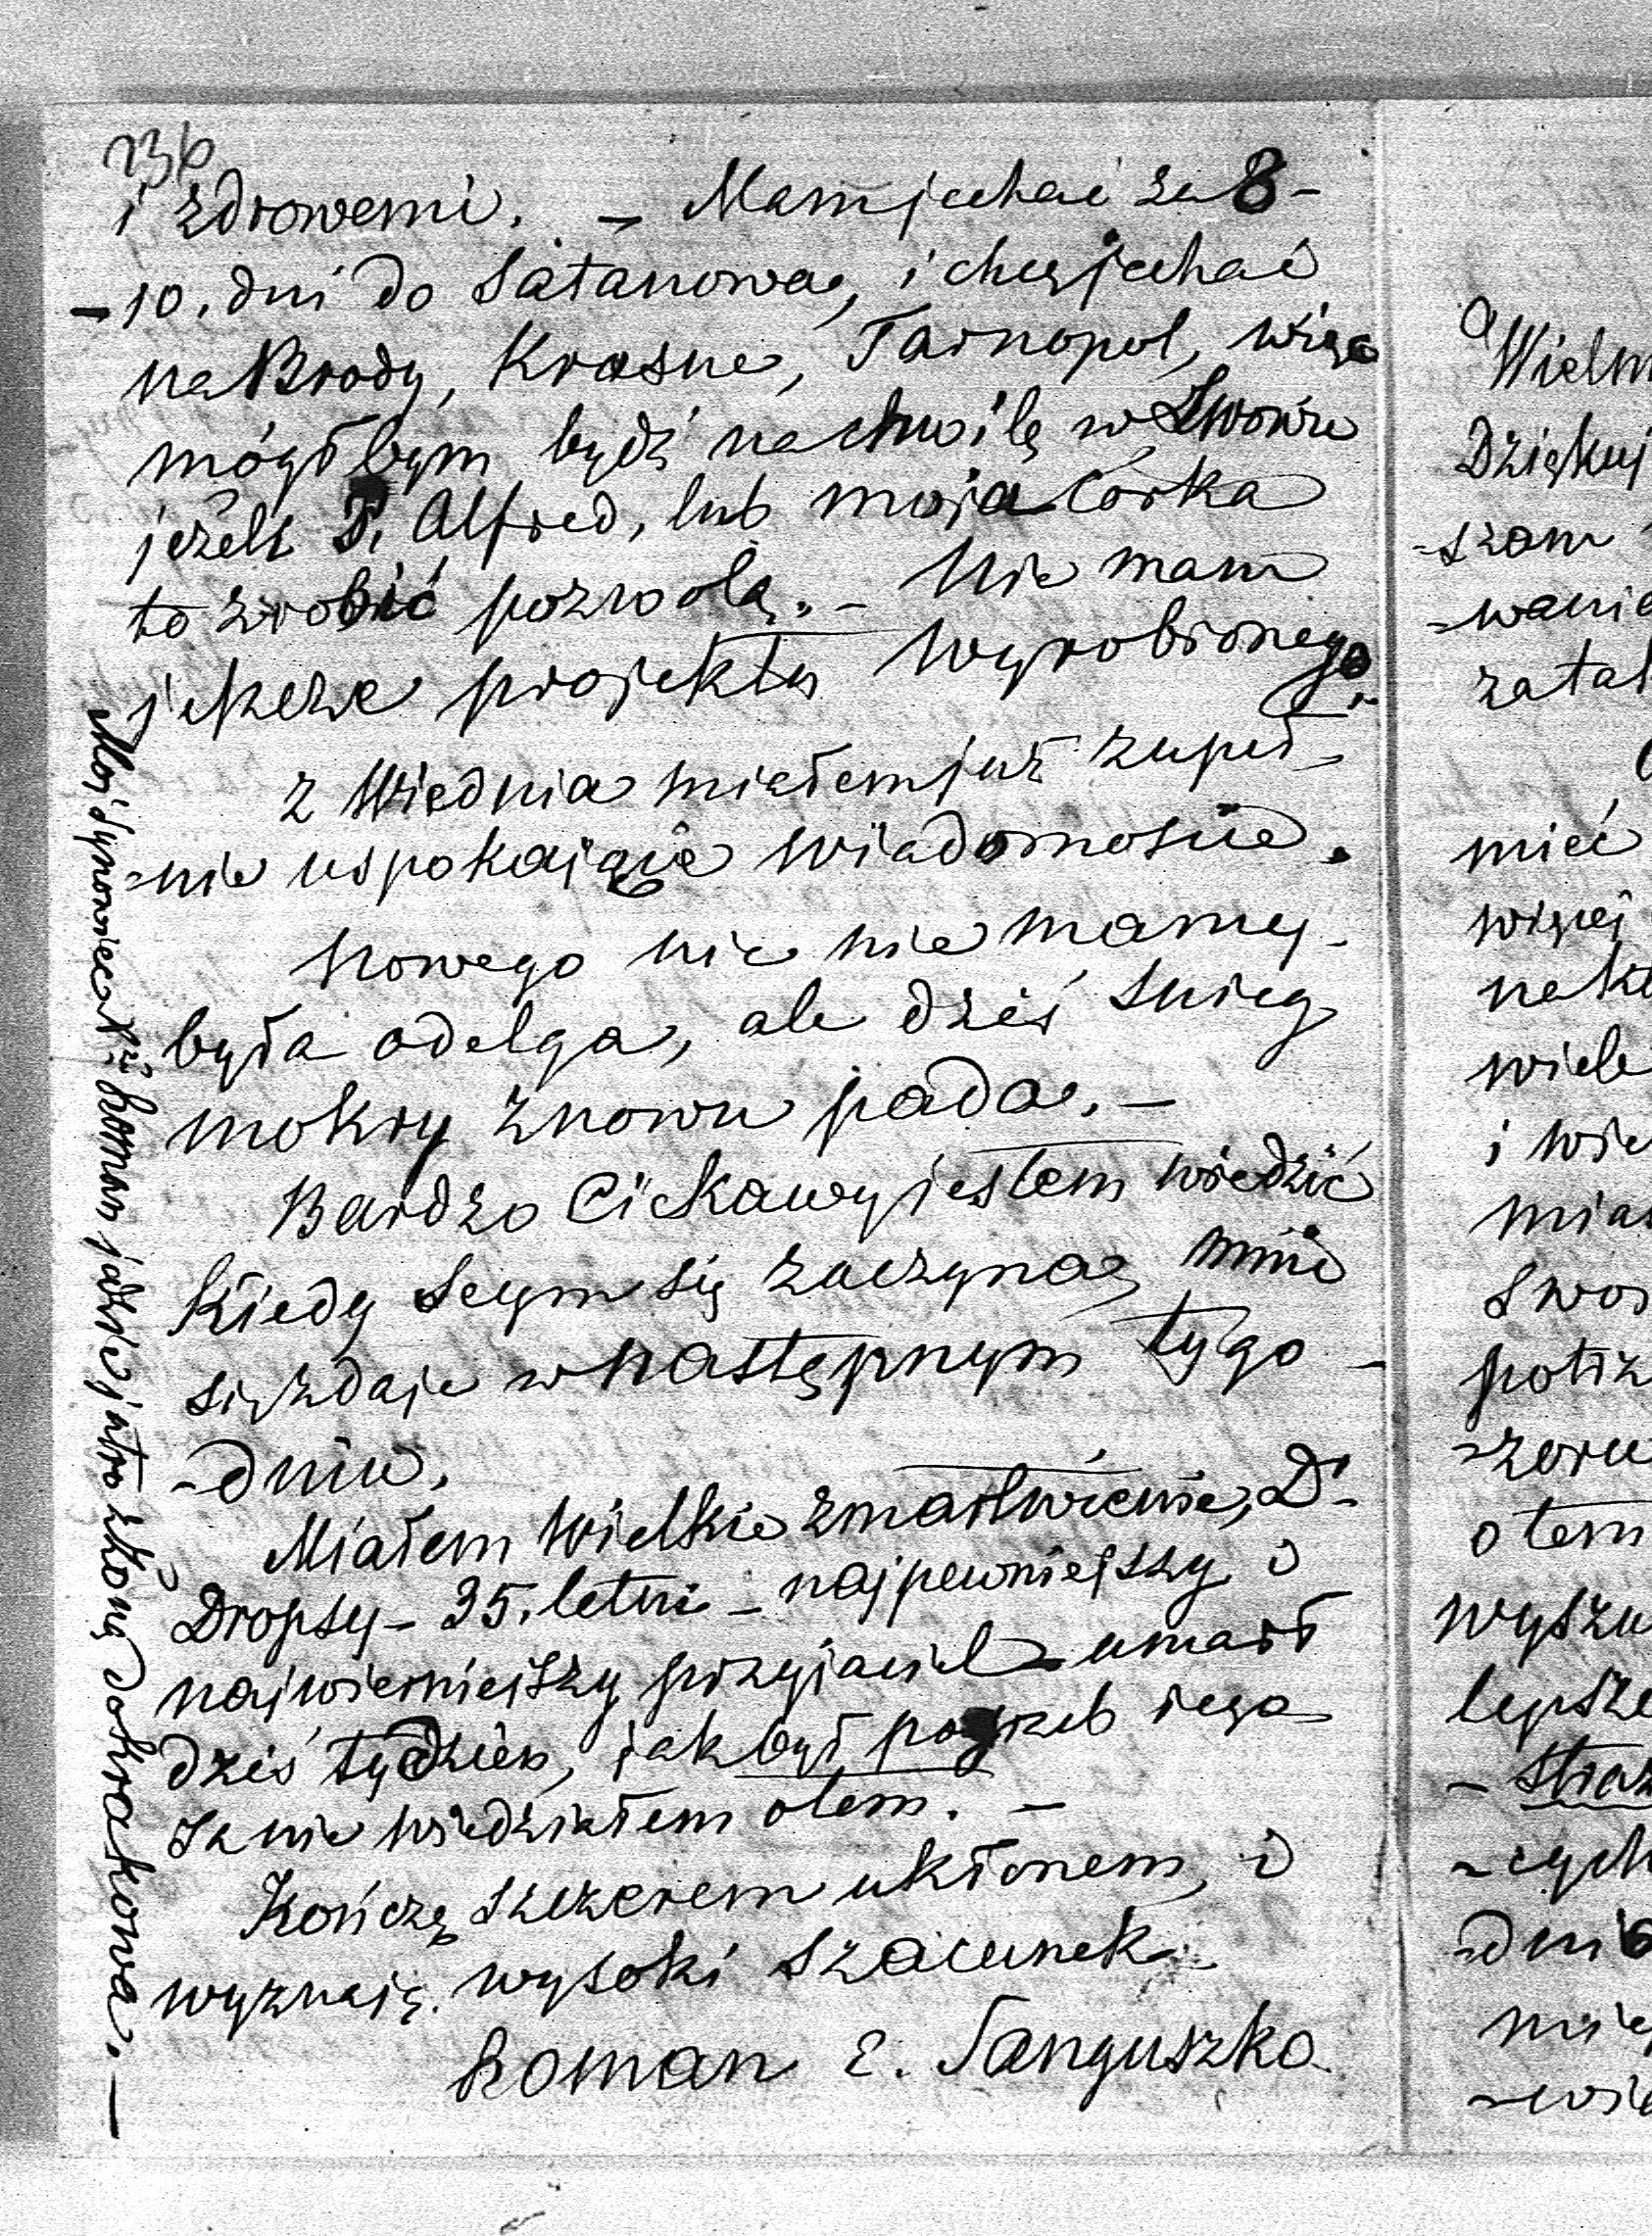 236
i zdrowemi. – Mam jechać za 8–
–10. dni do Satanowa, i chcę jechać
na Brody, Krasne, Tarnopol, więc
mógłbym bydź na chwilę w Lwowie
jeżeli P. Alfred, lub moja Córka
to zrobić pozwolą. – Nie mam
jeszcze projektu wyrobionego. –
z Wiednia miałem już zupeł-
-nie uspokającie wiadomoście.
Nowego nic nie mamy.
była odelga, ale dziś śnieg
mokry znowu pada. –
Bardzo Ciekawy jestem wiedzić
Kiedy Seym się zaczyna, mnie
się zdaje w następnym tygo-
-dniu.
Miałem Wielkie zmartwienie, Dr
Dropsy – 35. letni – najpewniejszy i
najwierniejszy przyjaciel – umarł
dziś tydzień, jak był pogrzeb jego
Ja nie wiedziałem otem. –
Kończę szczerem ukłonem, i
wyznaję wysoki szacunek
Roman E. Sanguszko
Mój Synowiec X: Roman jedzie jutro z Żoną do Krakowa. –
Wielm
Dziękuj
-szam
-wanie
zatał
mieć
więcej
wiele
i wie
mia
swo
potrz
-zoru
otem
wyszu
lepsze
-cych
-dnio